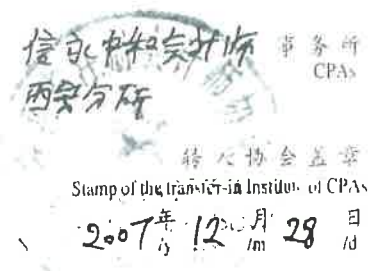 信永中和会计师 事务所
CPAs
西安分所
转入协会盖章
Stamp of the transfer-in Institute of CPAs
2007 年 12 月 28 日
/y /m /d